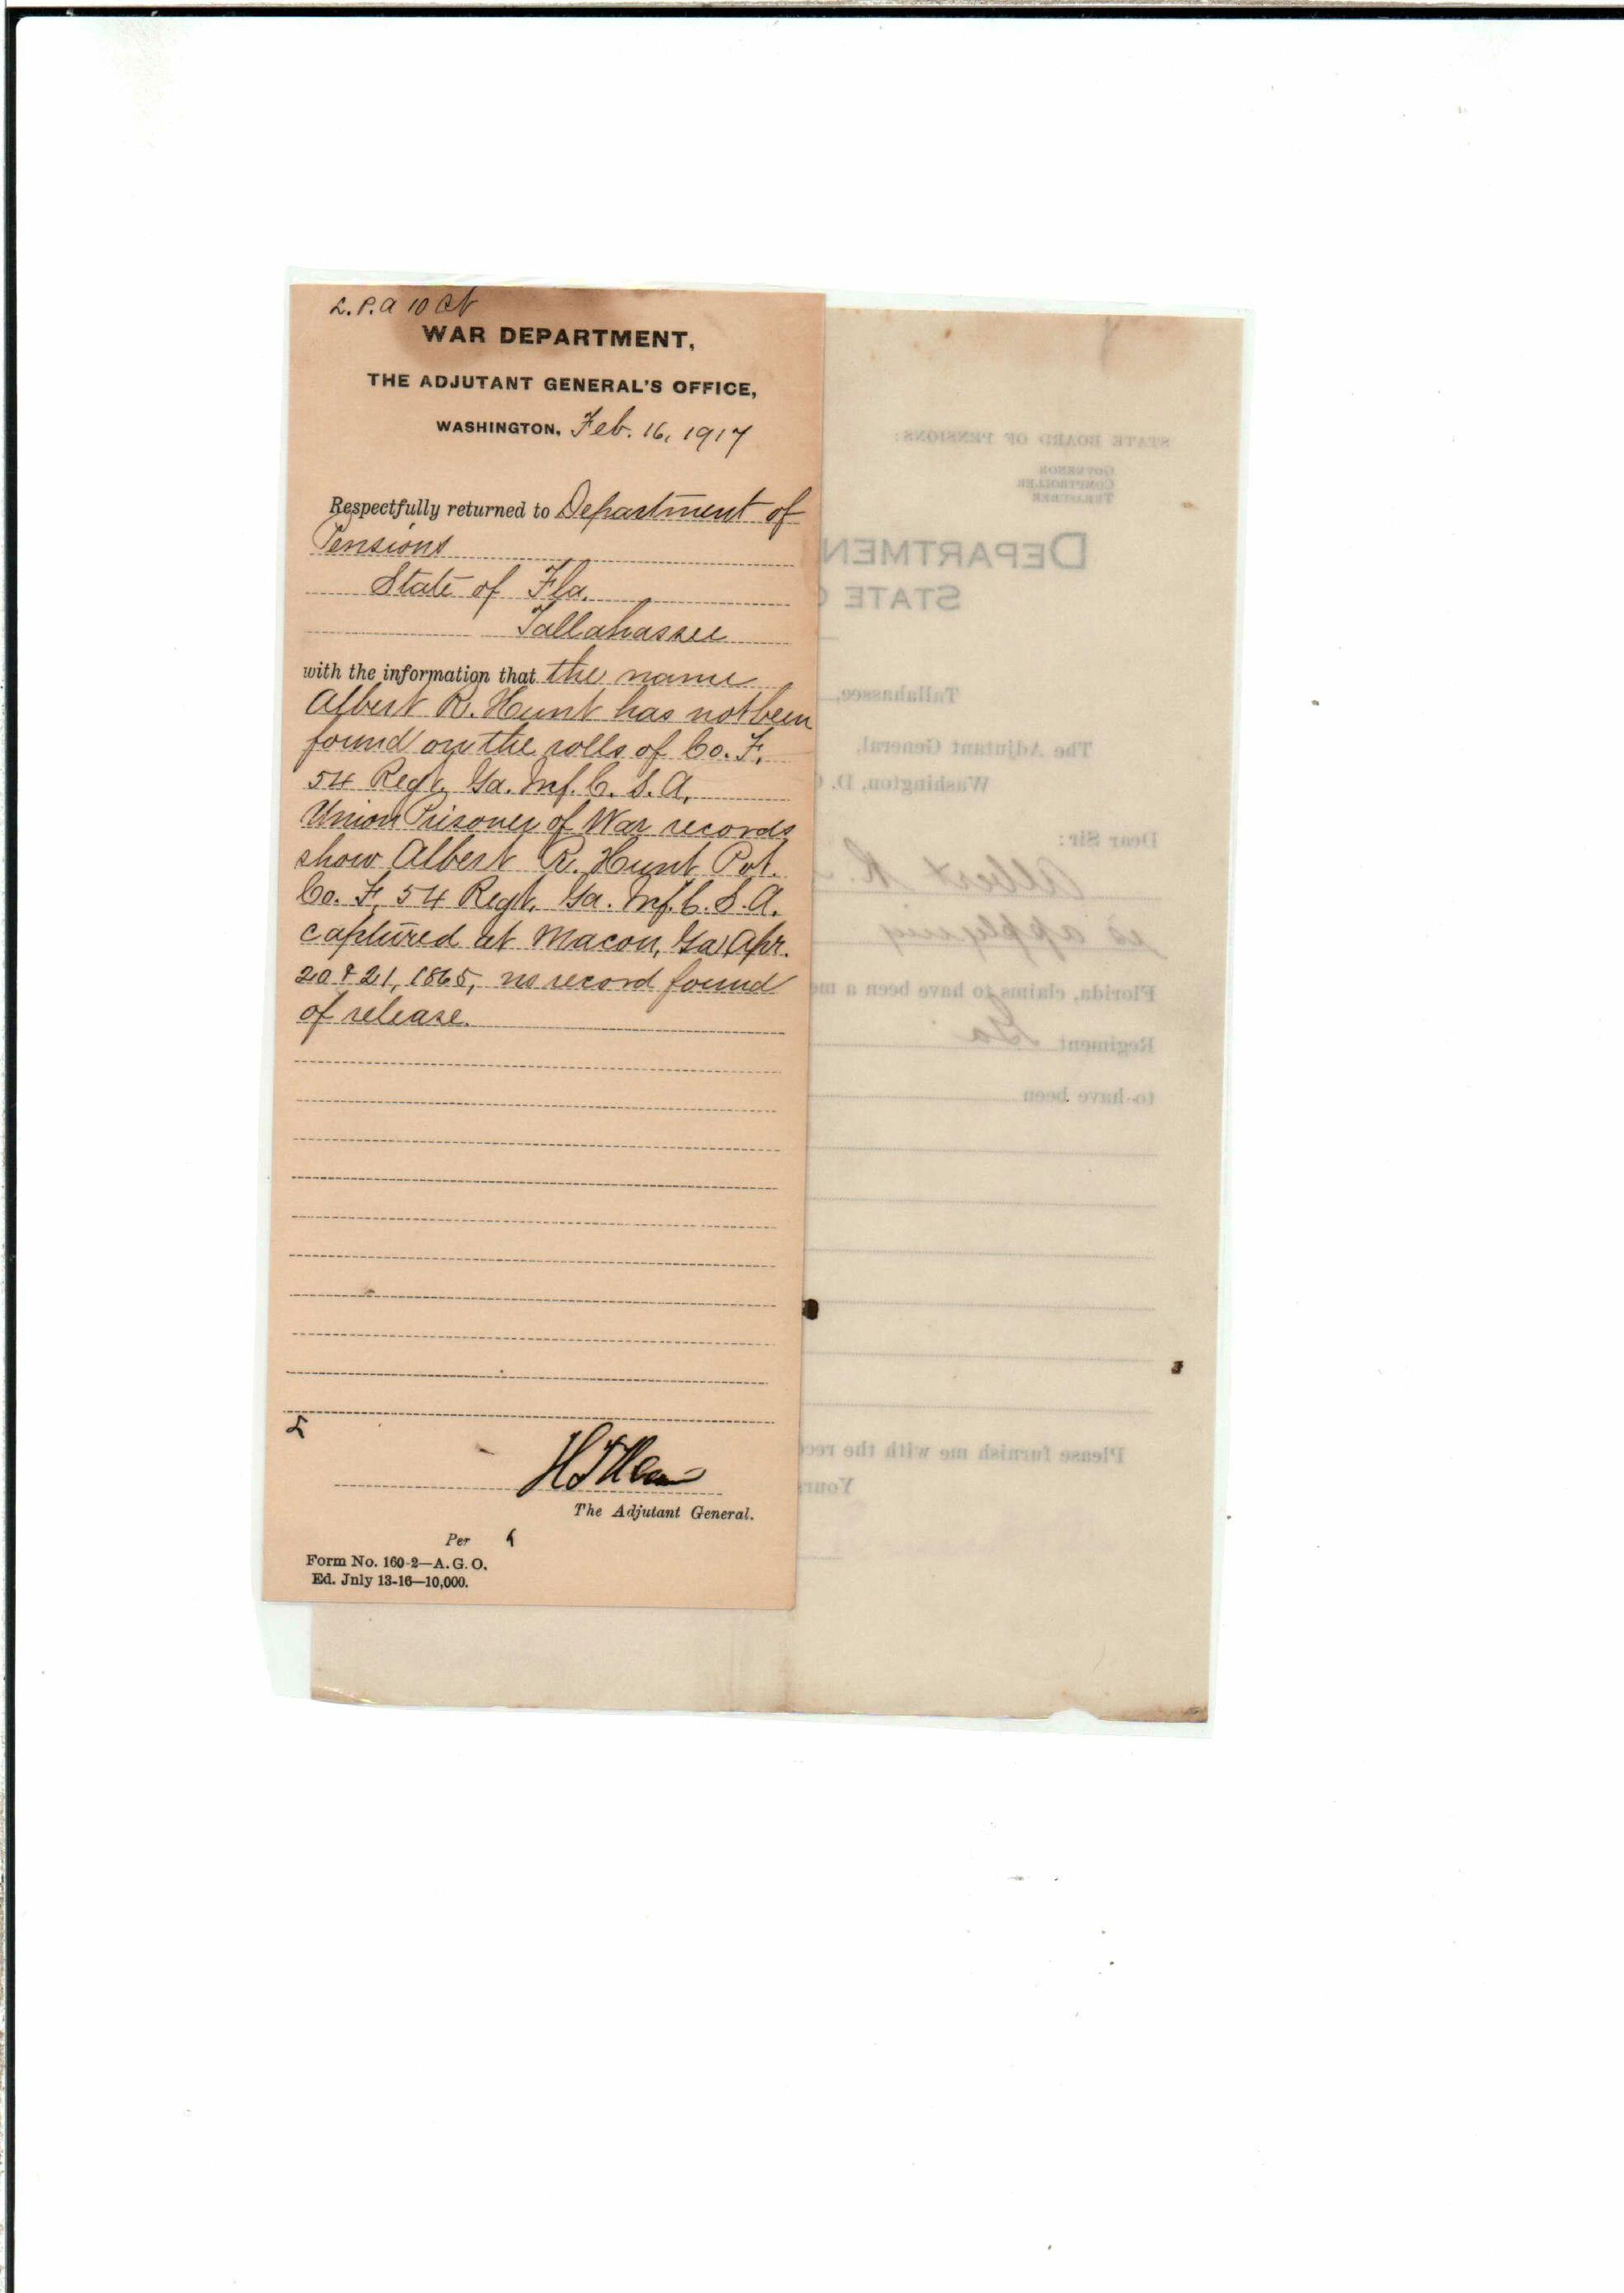 L. P. A 10
WAR DEPARTMENT,
THE ADJUTANT GENERAL'S OFFICE,
WASHINGTON, Feb. 16, 1917
Respectfully returned to Department of
Pensions
State of Fla.
Tallahassee
with the information that the name
Albert R. Hunt has not been
found on the rolls of Co. F,
54 Regt. Ga. Inf. C. S. A.
Union Prisoner of War records
show Albert R. Hunt Pvt.
Co. F, 54 Regt. Ga. Inf. C. S. A.
captured at Macon, Ga, Apr.
20 & 21, 1865, no record found
of release.
The Adjutant General.
Per
Form No. 160-2—A. G. O.
Ed. July 13-16—10,000.
STATE BOARD OF PENSIONS:
GOVERNOR
COMPTROLLER
TREASURER
DEPARTMEN
STATE
Tallahassee,
The Adjutant General,
Washington, D.
Dear Sir:
Albert R.
is applying
Florida, claims to have been a me
Regiment Ga
to have been
Please furnish me with the rec
Yours